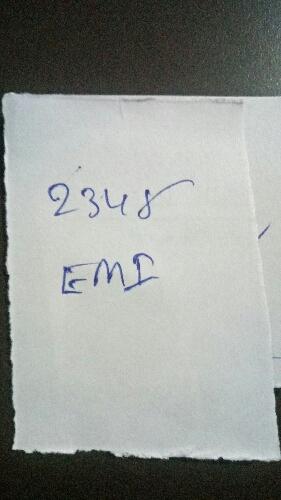 2348
EMI